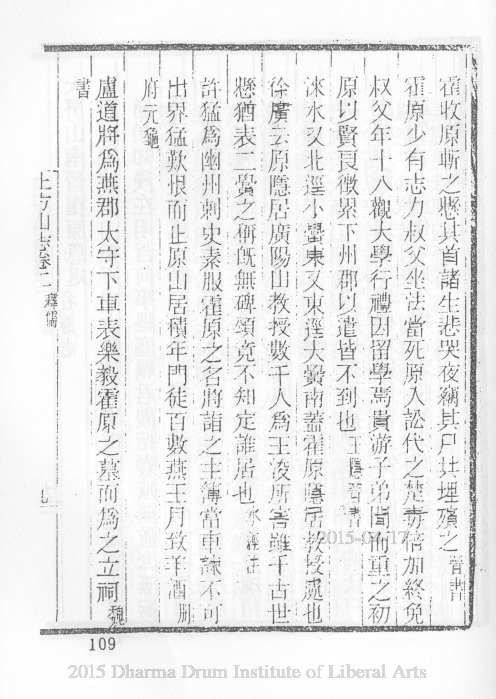 霍收原斬之懸其首諸生悲哭夜竊其尸共埋殯之晉書
霍原少有志力叔父坐法當死原入訟代之楚毒倍加終免
叔父年十八觀大學行禮因留學焉貴游子弟聞而重之初
原以賢良徵累下州郡以遣皆不到也王隱晉書
淶水又北逕小黌東又東逕大黌南蓋霍原隱居教授處也
徐廣云原隱居廣陽山教授數千人為王浚所害雖千古世
懸猶表二黌之稱既無碑頌竟不知定誰居也水經注
許猛為幽州刺史素服霍原之名將詣之主簿當車諫不可
出界猛歎恨而止原山居積年門徒百數燕王月致羊酒冊
府元龜
盧道將為燕郡太守下車表樂毅霍原之墓而為之立祠魏
書
上方山志卷二 釋儒
九
109
2015-04-17
2015 Dharma Drum Institute of Liberal Arts